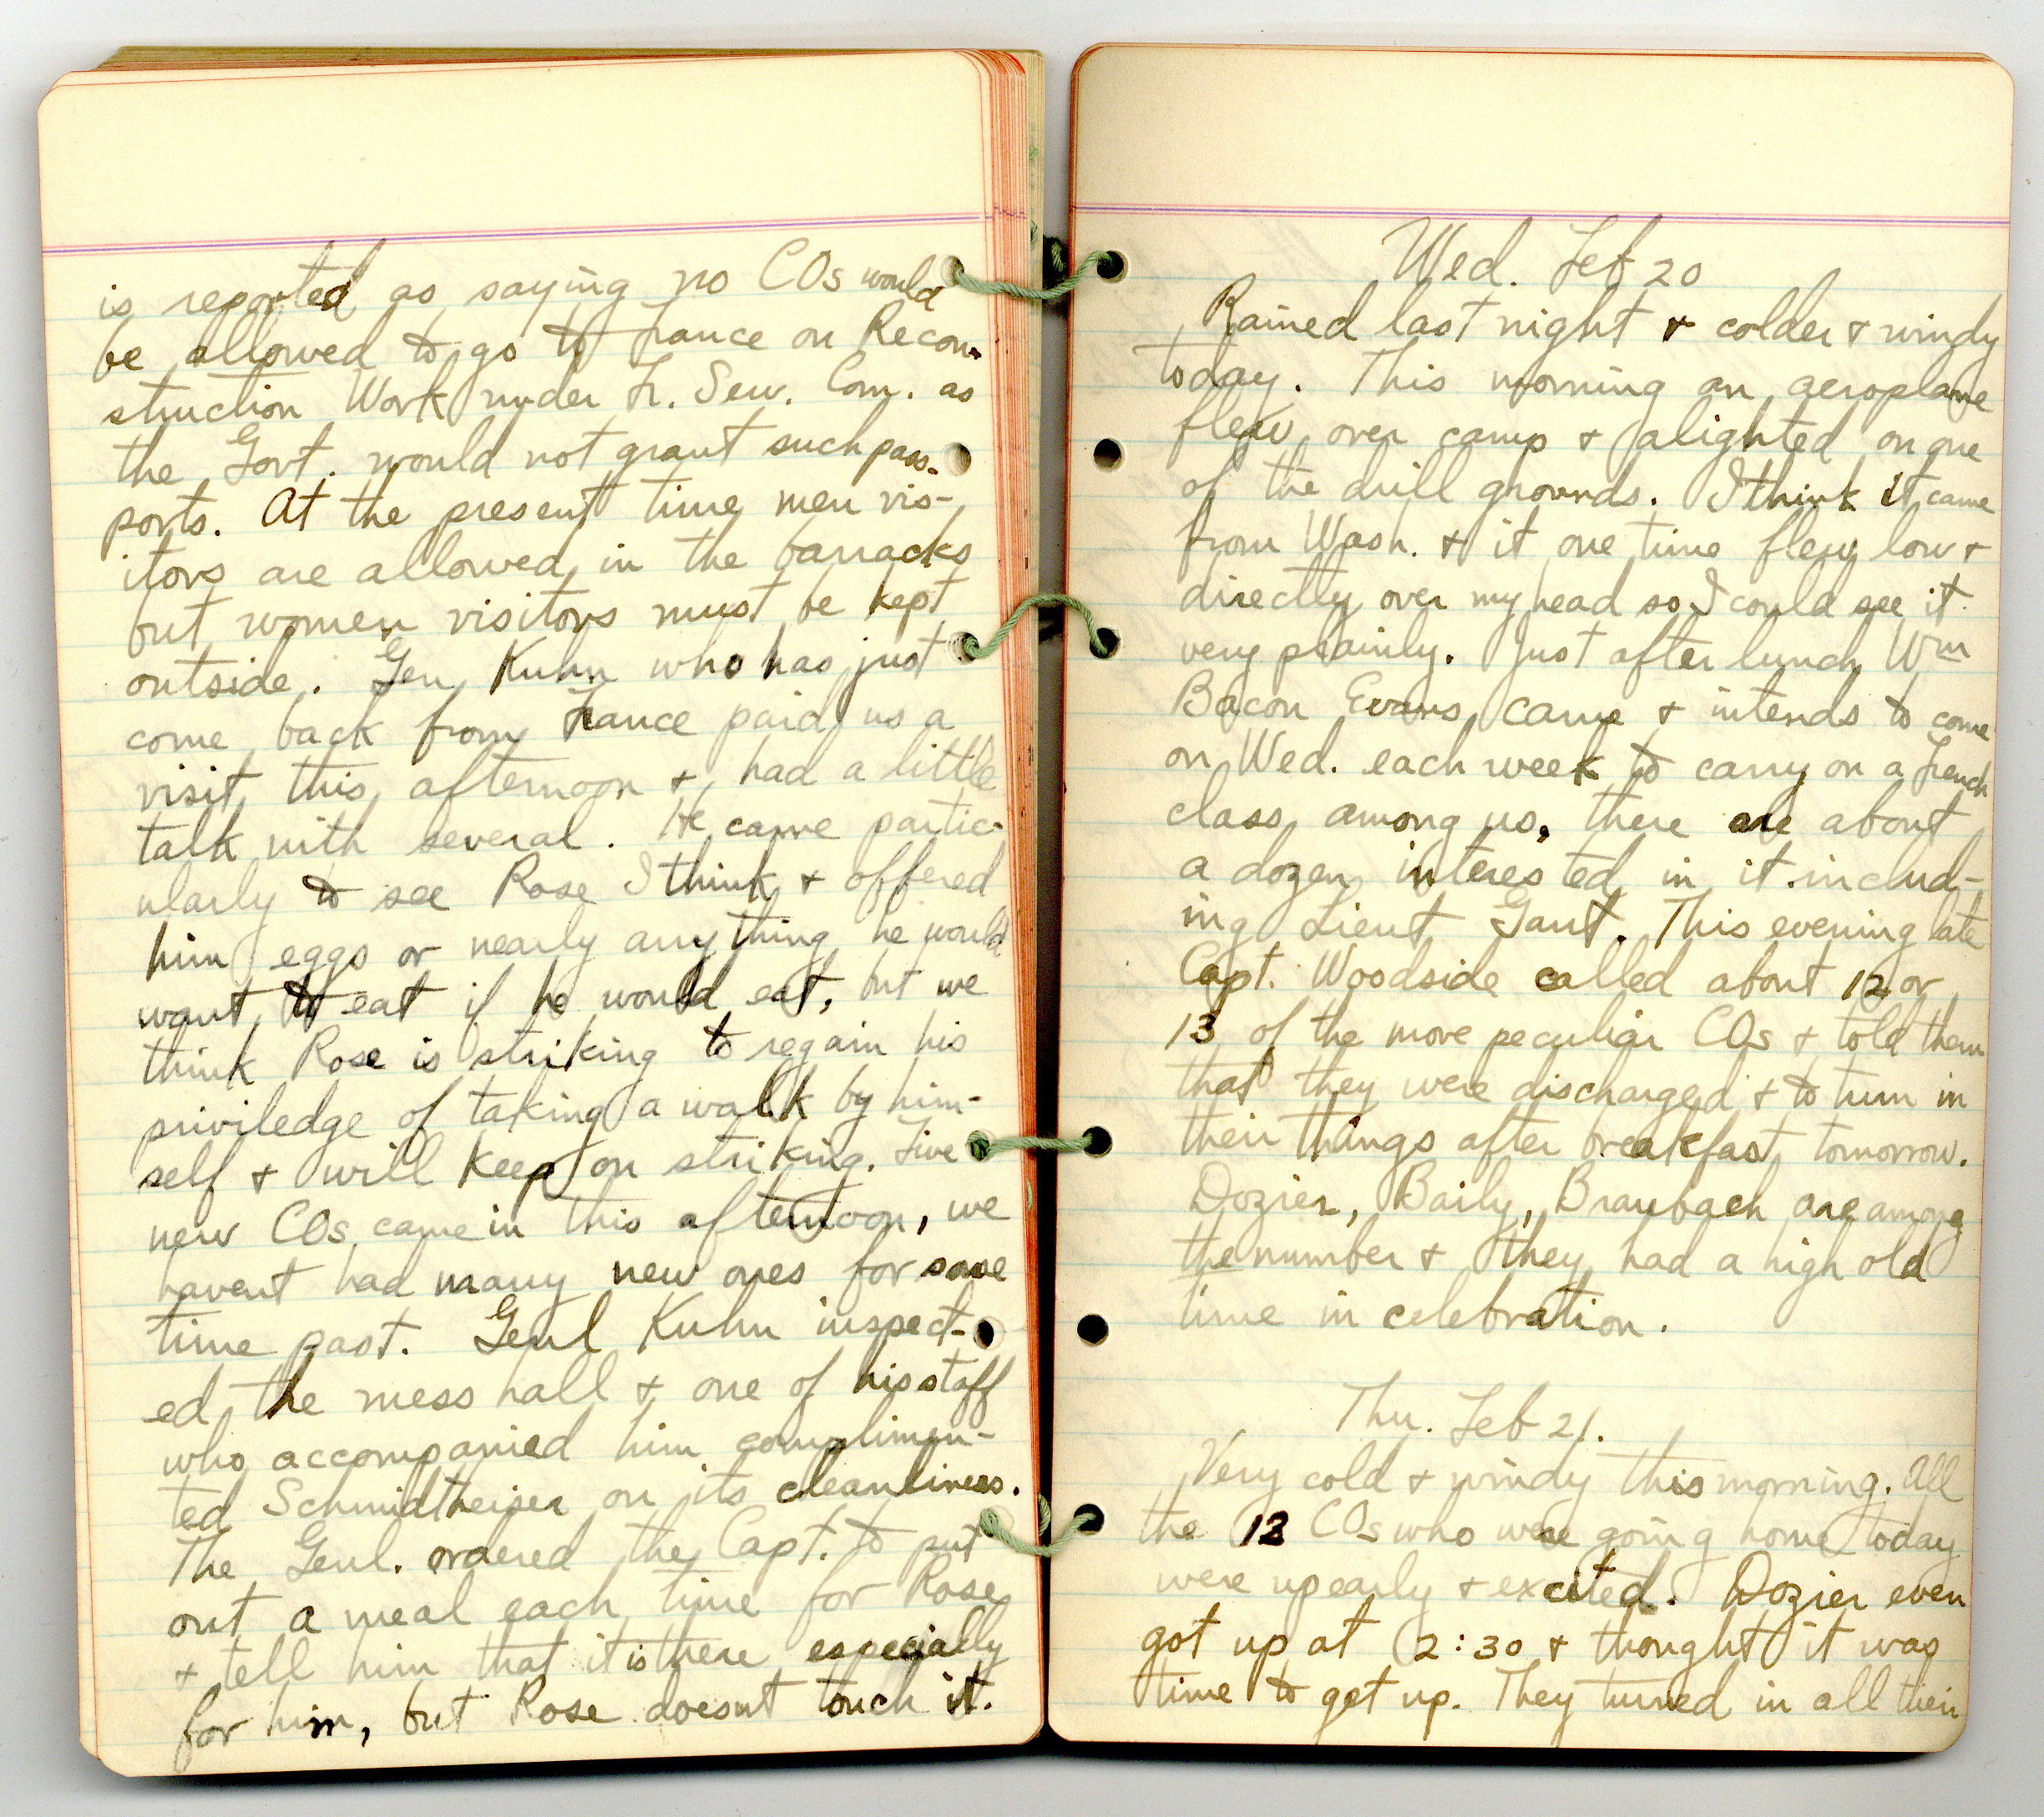 is reported as saying no COs would
be allowed to go to France on Recon-
struction Work under Fr. Serv. Com. as
the Govt. would not grant such pass-
ports. At the present time men vis-
itors are allowed in the barracks
but women visitors must be kept
outside. Gen Kuhn who has just
come back from France paid us a
visit this afternoon & had a little
talk with several. He came partic-
ularly to see Rose I think & offered
him eggs or nearly anything he would
want to eat if he would eat, but we
think Rose is striking to regain his
priviledge of taking a walk by him-
self & will keep on striking. Five
new COs came in this afternoon, we
havent had many new ones for some
time past. Genl Kuhn inspect-
ed the mess hall & one of his staff
who accompanied him complimen-
ted Schmidtheiser on its cleanliness.
The Genl. ordered the Capt. to put
out a meal each time for Rose
& tell him that it is there especially
for him, but Rose doesnt touch it.
Wed. Feb 20
Rained last night & colder & windy
today. This morning an aeroplane
flew over camp & alighted on one
of the drill grounds. I think it came
from Wash. & it one time flew low &
directly over my head so I could see it
very plainly. Just after lunch Wm
Bacon Evans came & intends to come
on Wed. each week to carry on a French
class among us, there are about
a dozen interested in it includ-
ing Lieut Gant. This evening late
Capt. Woodside called about 12 or
13 of the more peculiar COs & told them
that they were discharged & to turn in
their things after breakfast tomorrow.
Dozier, Baily, Braubach are among
the number & they had a high old
time in celebration.
Thu. Feb 21.
Very cold & windy this morning. All
the 12 COs who were going home today
were up early & excited. Dozier even
got up at 2:30 & thought it was
time to get up. They turned in all their